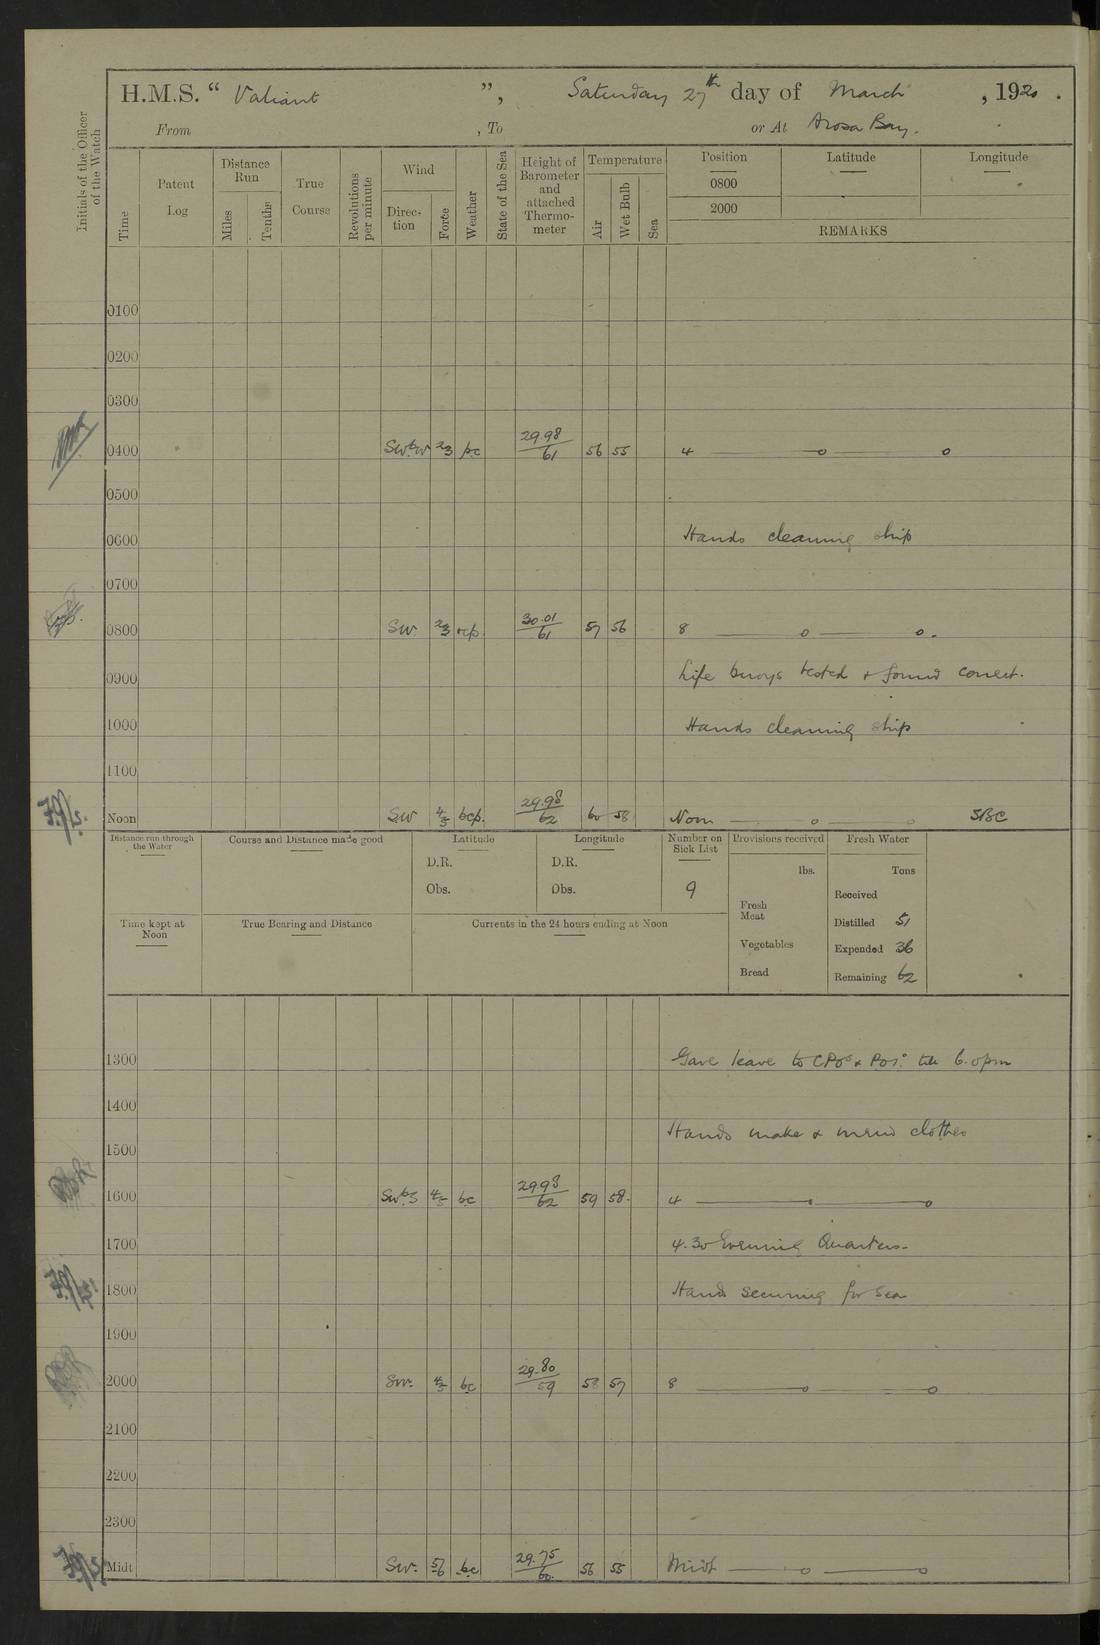 H.M.S. "Valiant", Saturday 27th day of March, 1920.
From , To or At Arosa Bay.
Initials of the Officer of the Watch
Time
Patent Log
Distance Run
Miles
Tenths
True Course
Revolutions per minute
Wind
Direction
Force
Weather
State of the Sea
Height of Barometer and attached Thermometer
Temperature
Air
Wet Bulb
Sea
Position Latitude Longitude
0800
2000
REMARKS
0100
0200
0300
0400 SWbW 2/3 bc 29.98/61 56 55 4 —o—o
0500
0600 Hands cleaning ship
0700
0800 SW. 2/3 ocp. 30.01/61 57 56 8 —o—o.
0900 Life buoys tested & found correct.
1000 Hands cleaning ship
1100
Noon SW 4/5 bcp. 29.98/62 60 58 Noon —o—o SBC
Distance run through the Water
Course and Distance made good
Latitude
D.R.
Obs.
Longitude
D.R.
Obs.
Number on Sick List
9
Provisions received
lbs.
Fresh Meat
Vegetables
Bread
Fresh Water
Tons
Received
Distilled 51
Expended 36
Remaining 62
Time kept at Noon
True Bearing and Distance
Currents in the 24 hours ending at Noon
1300 Gave leave to CPOs & POs. till 6.0pm
1400
Hands make & mend clothes
1500
1600 SWbS 4/5 bc 29.98/62 59 58. 4 —o—o
1700 4.30 Evening Quarters.
1800 Hands securing for sea
1900
2000 SW. 4/5 bc 29.80/59 58 57 8 —o—o
2100
2200
2300
Midt SW. 5/6 bc 29.75/60. 56 55 Midt —o—o